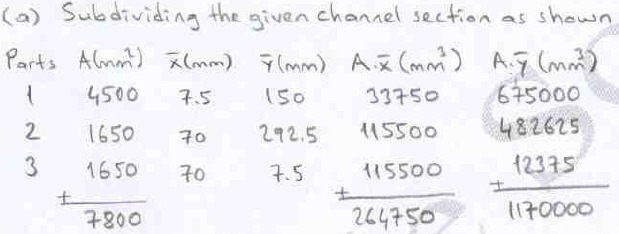 (a) Subdividing the given channel section as shown
Parts A(mm²) x̄(mm) ȳ(mm) A.x̄ (mm³) A.ȳ (mm³)
1 4500 7.5 150 33750 675000
2 1650 70 292.5 115500 482625
3 1650 70 7.5 115500 12375
+ + +
7800 264750 1170000